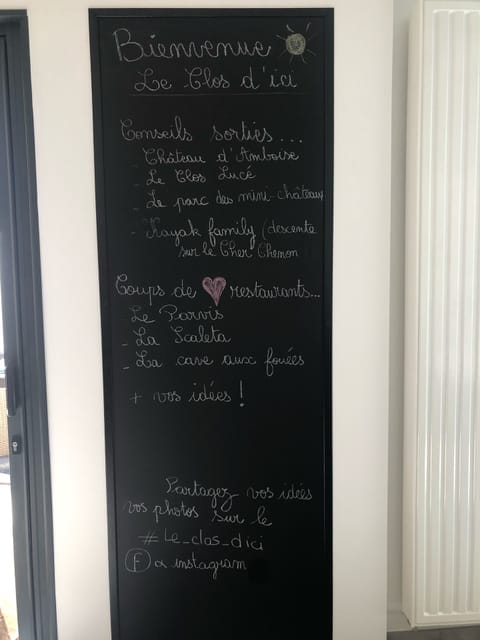 Bienvenue
Le Clos d'ici
Conseils sorties...
- Château d'Amboise
- Le Clos Lucé
- Le parc des mini-châteaux
- Kayak family (descente
sur le Cher Chenon
Coups de ♥ restaurants...
- Le Parvis
- La Scaleta
- La cave aux fouées
+ vos idées !
Partagez vos idées
vos photos sur le
#Le_clos_dici
F instagram